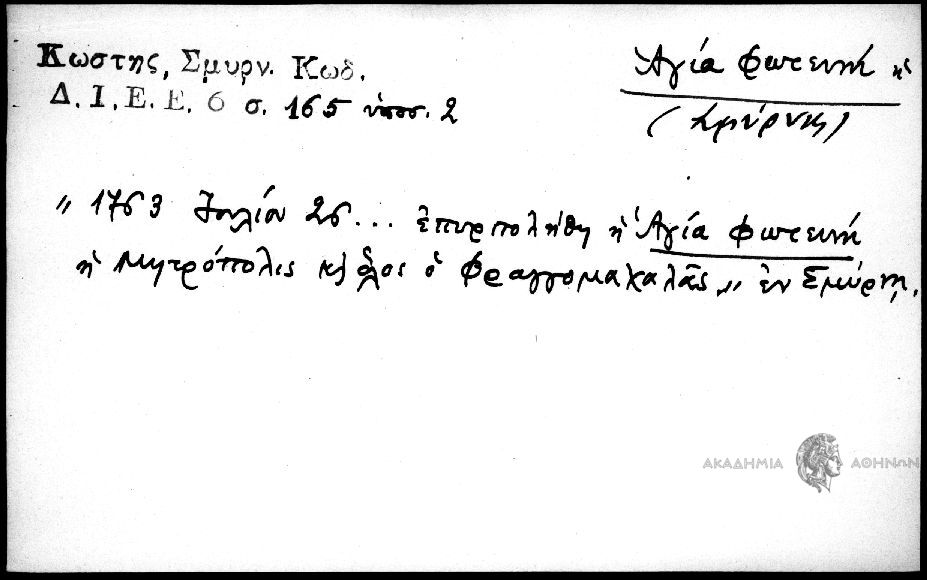 Κωστης, Σμυρν. Κωδ.
Δ. Ι. Ε. Ε. 6 σ. 165 ὑποσ. 2
Ἁγία Φωτεινή ἡ
(Σμύρνης)
„ 1763 Ἰουλίου 26 ... ἐπυρπολήθη ἡ Ἁγία Φωτεινή
ἡ Μητρόπολις κ) ὅλος ὁ Φραγγομαχαλᾶς „ ἐν Σμύρνῃ.
ΑΚΑΔΗΜΙΑ ΑΘΗΝΩΝ